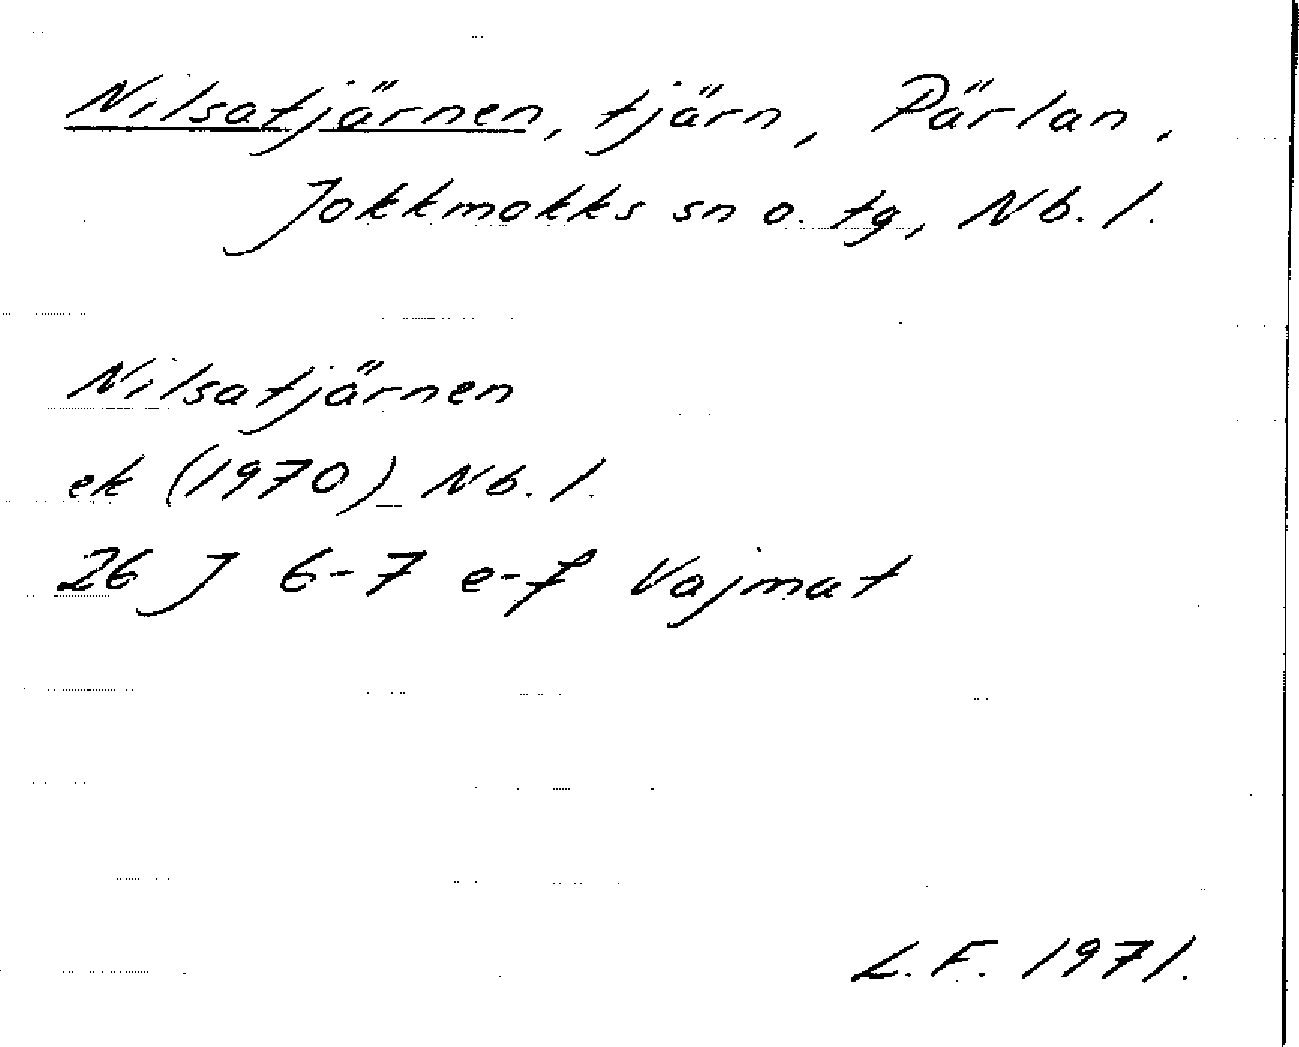 Nilsatjärnen, tjärn, Pärlan,
Jokkmokks sn o. tg, Nb. l.
Nilsatjärnen
ek (1970) Nb. l.
26 J 6-7 e-f Vajmat
L.F. 1971.